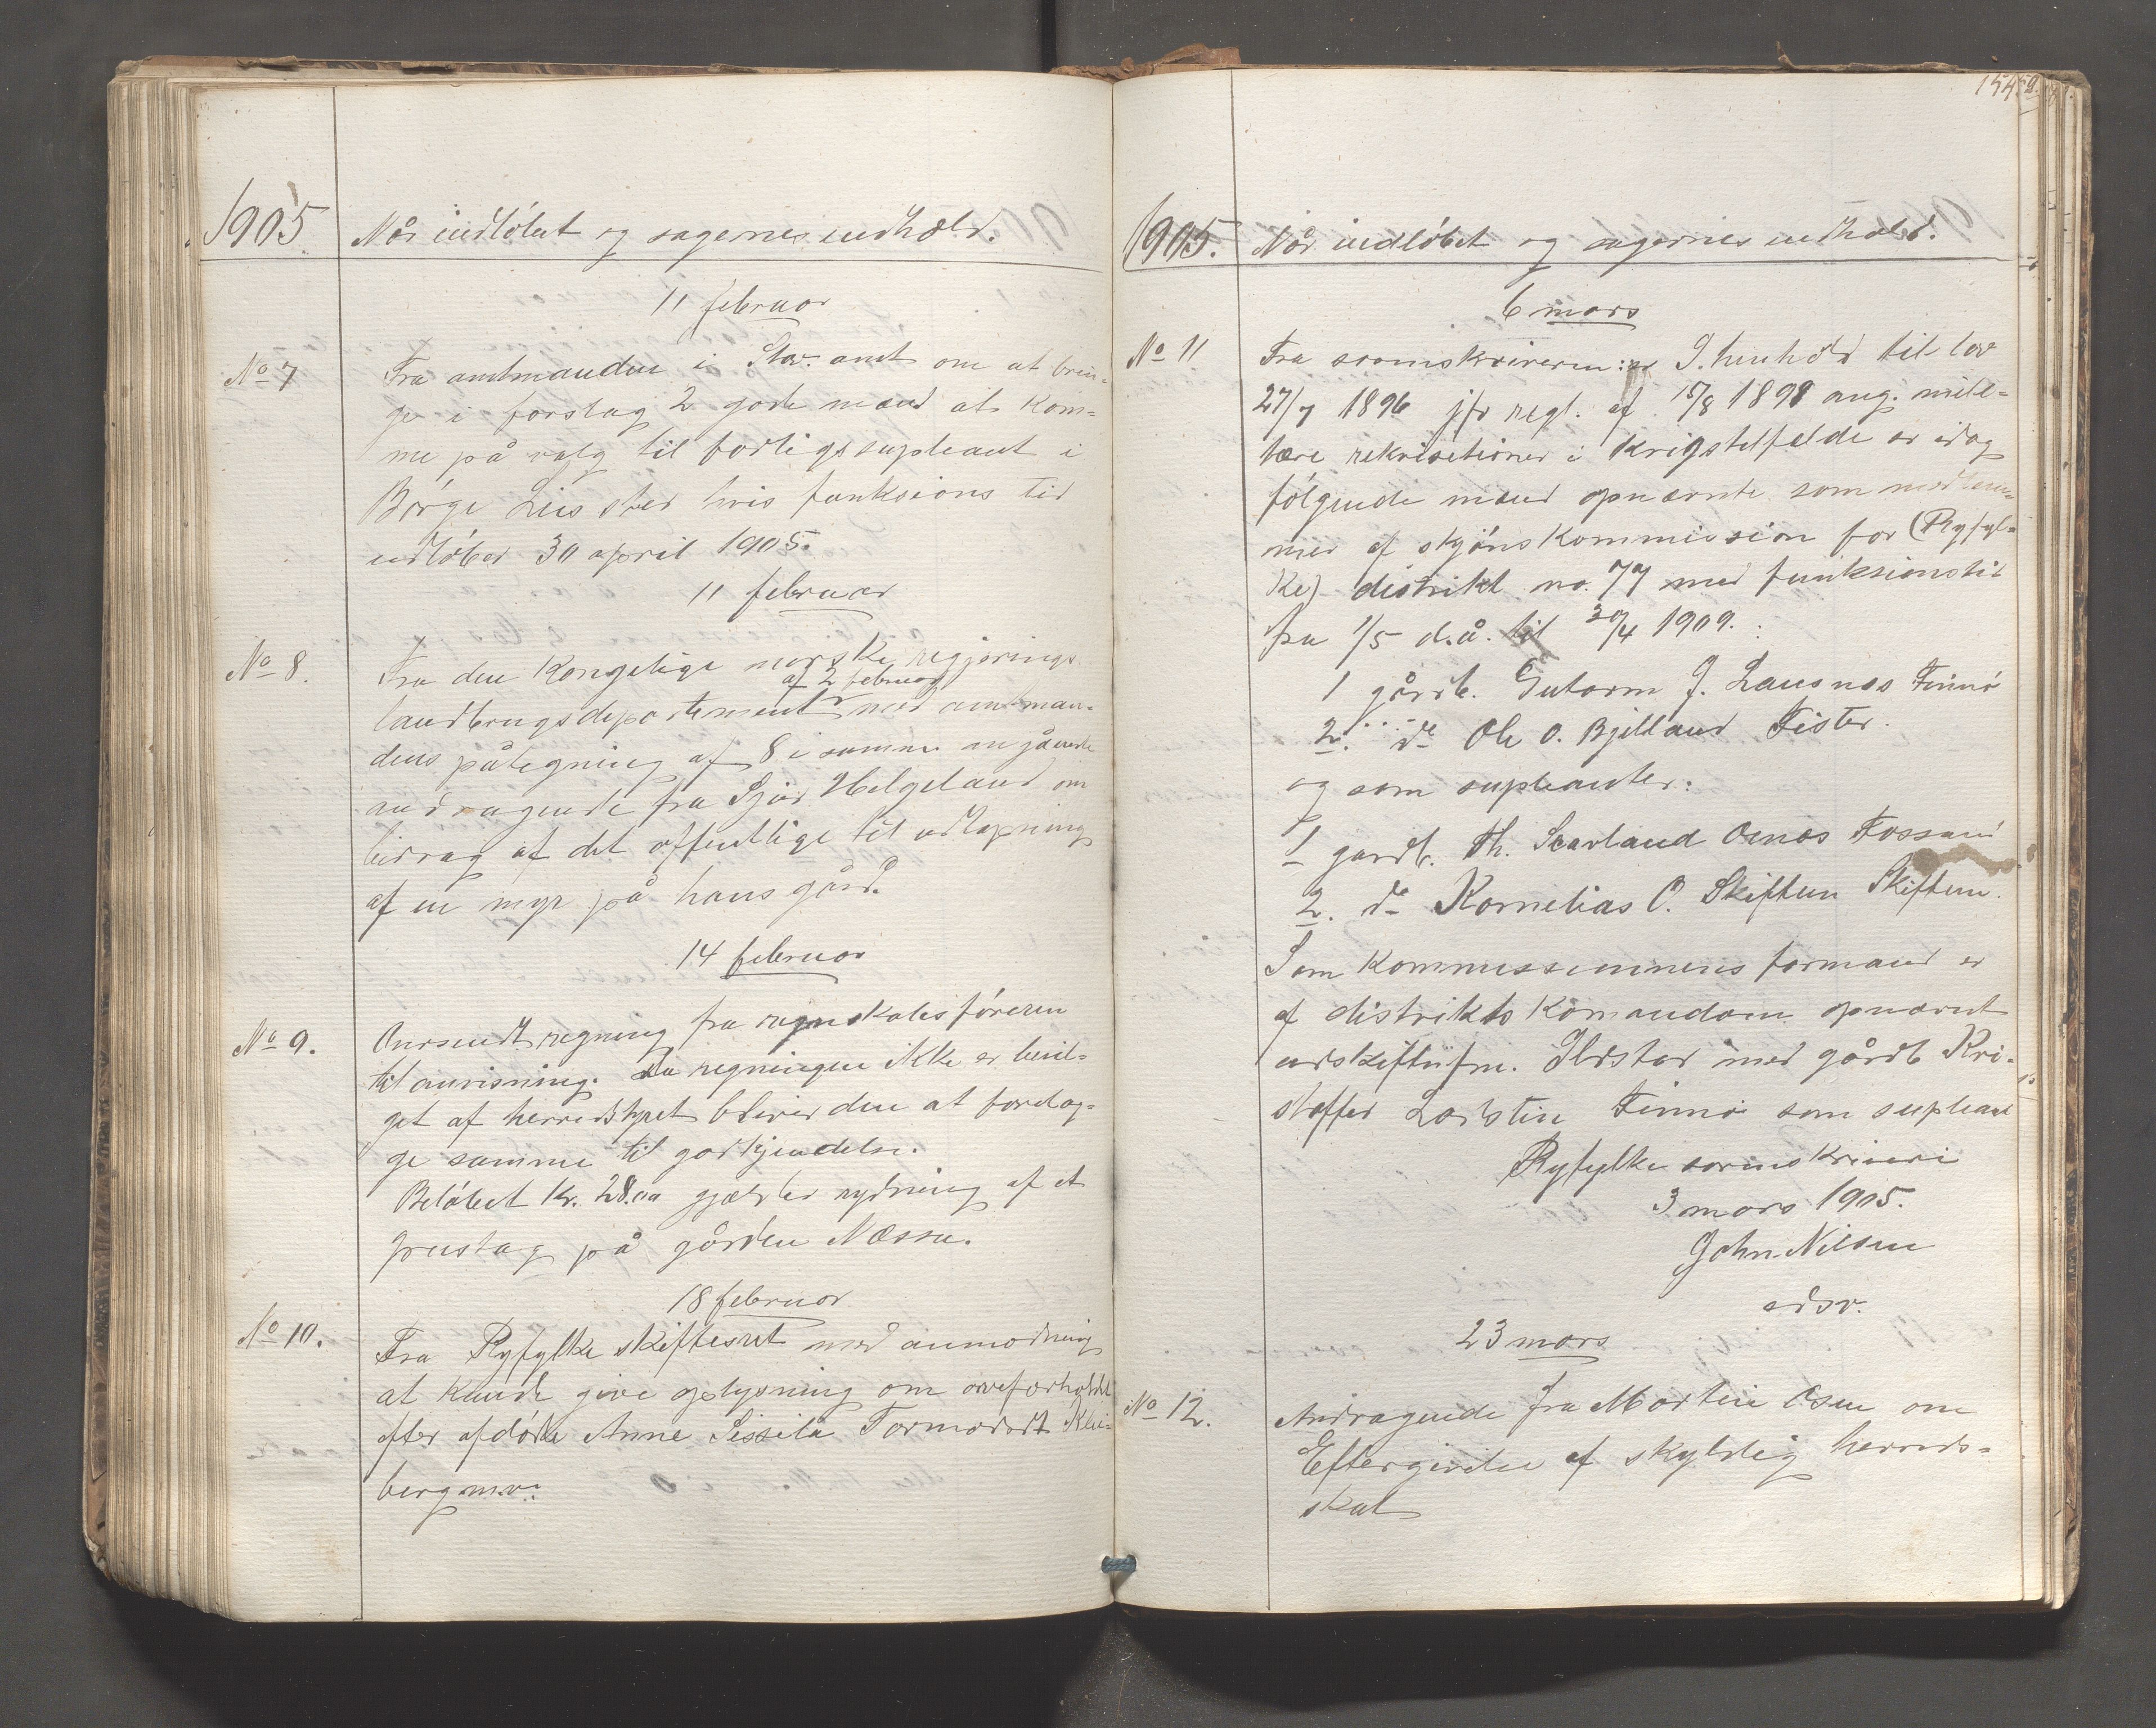 1905 Når indløbet og sagernes indhold.
11 februar
No 7 Fra amtmanden i Stav. amt om at brin-
ge i forslag 2 gode mænd at kom-
me på valg til forligssupleant i
Børge Lies sted hvis funksions tid
udløber 30 april 1905.
11 februar
No 8. Fra den Kongelige norske regjerings
af 2 februar
landbrugsdepartement med amtman-
dens påtegning af 8 i samme angående
andragende fra Sjur Helgeland om
bidrag af det offentlige til udtapning
af en myr på hans gård.
14 februar
No 9. Oversendt regning fra regnskabsføreren
til anvisning. Da regningen ikke er bevil-
get af herredstyret bliver den at forelæg-
ge samme til godkjendelse.
Beløbet Kr. 28.00 gjælder rydning af et
grustag på gården Næssa.
18 februar
No 10. Fra Ryfylke skifteret med anmodning
at kunde give oplysning om arveforholdet
efter afdøde Anne Sissela Tormodsdt Klei-
berg m.v.
154
1905. Når indløbet og sagernes indhold.
6 mars
No 11 Fra sorenskriveren: I henhold til lov
27/7 1896 jfr regl. af 15/8 1898 ang. mili-
tære rekvisitioner i krigstilfælde er idag
følgende mænd opnævnte som medlem-
mer af skjønskommission for (Ryfyl-
ke) distrikt no. 77 med funksionstid
fra 1/5 d.å. til 30/4 1909.
1 gårdb. Gutorm J. Lausnes Finnø
2. do Ole O. Bjelland Fister.
og som supleanter:
1 gardb. Th. Scarland Fossand
2. do Kornelias O. Skiftun Skiftun.
Som kommissionens formand er
af distrikts komandoen opnævnt
udskiftnfm. Ildstad med gårdb Kri-
stoffer Ladstein Finnø som supleant
Ryfylke sorenskriveri
3 mars 1905.
John Nilsen
edsv.
23 mars
No 12. Andragende fra Martin Osen om
Eftergivelse af skyldig herreds-
skat